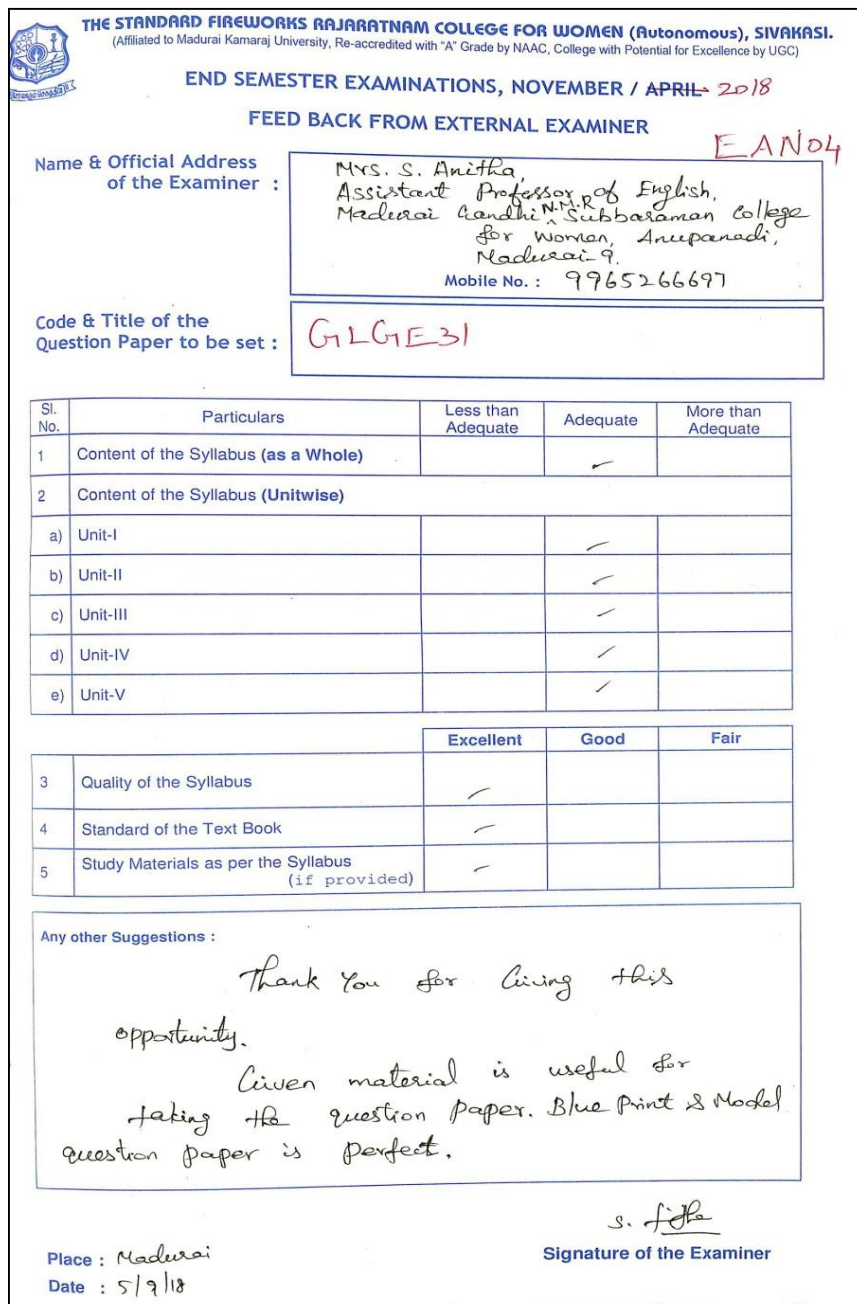 THE STANDARD FIREWORKS RAJARATNAM COLLEGE FOR WOMEN (Autonomous), SIVAKASI.
(Affiliated to Madurai Kamaraj University, Re-accredited with "A" Grade by NAAC, College with Potential for Excellence by UGC)
END SEMESTER EXAMINATIONS, NOVEMBER / APRIL 2018
FEED BACK FROM EXTERNAL EXAMINER
EAN04
Name & Official Address
of the Examiner :
Mrs. S. Anitha,
Assistant Professor of English,
Madurai Gandhi N.M.R Subbaraman College
for Women, Anupanadi,
Madurai-9.
Mobile No. : 9965266697
Code & Title of the
Question Paper to be set :
GLGE31
Sl. No. Particulars Less than Adequate Adequate More than Adequate
1 Content of the Syllabus (as a Whole)
2 Content of the Syllabus (Unitwise)
a) Unit-I
b) Unit-II
c) Unit-III
d) Unit-IV
e) Unit-V
Excellent Good Fair
3 Quality of the Syllabus
4 Standard of the Text Book
5 Study Materials as per the Syllabus
(if provided)
Any other Suggestions :
Thank You for Giving this
opportunity.
Given material is useful for
taking the question paper. Blue Print & Model
question paper is perfect.
Place : Madurai
Signature of the Examiner
Date : 5/9/18